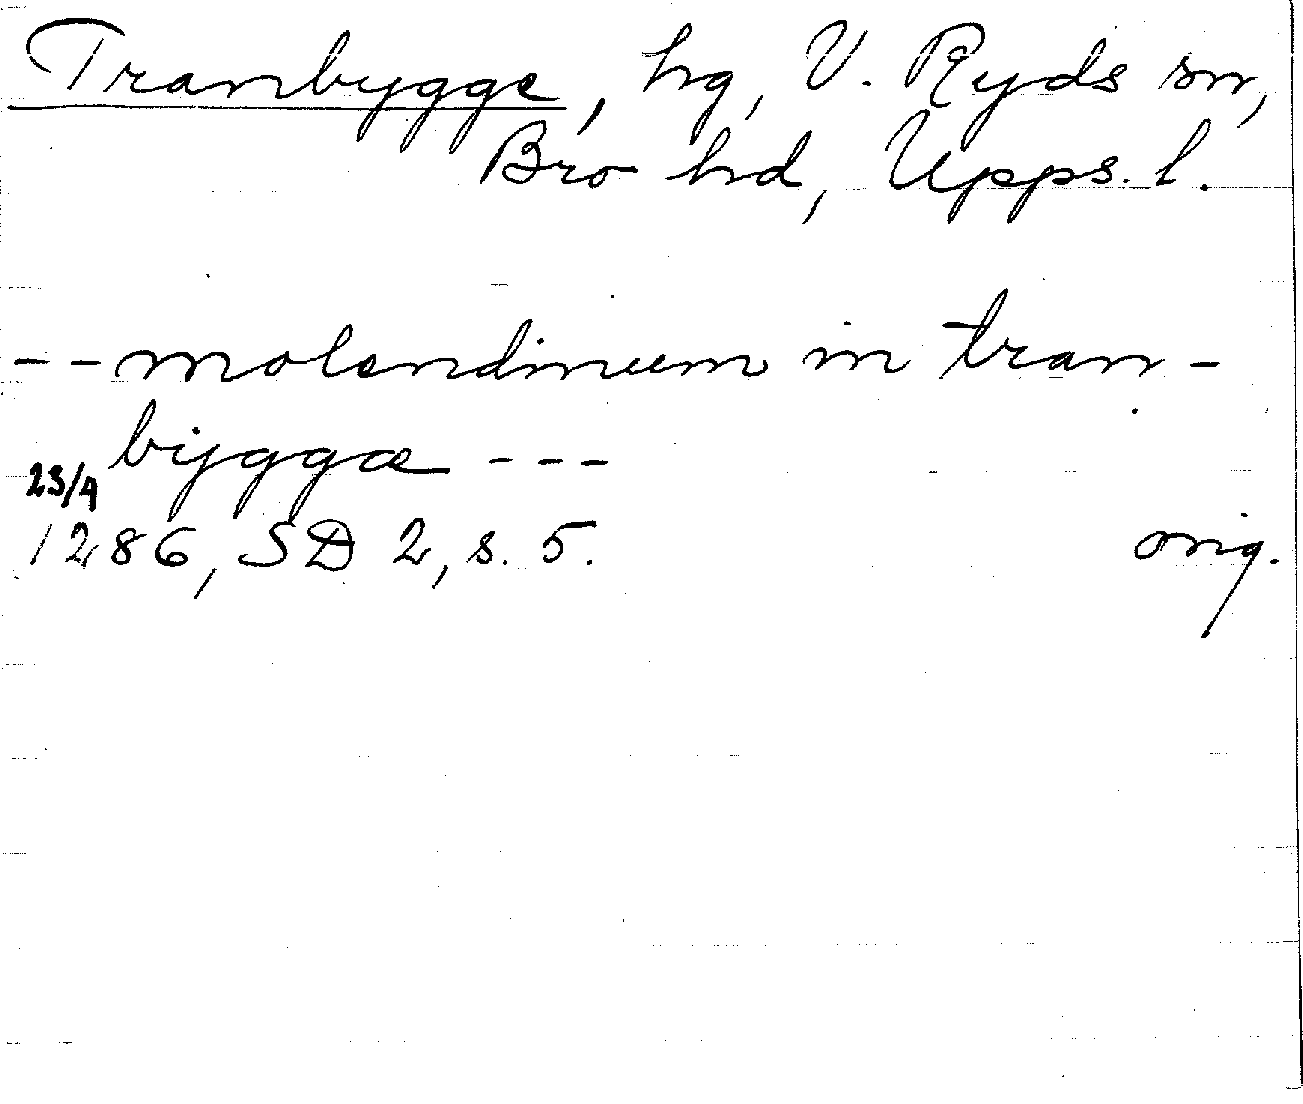 Tranbygge, hg, V. Ryds sn,
Bro hd, Upps. l.
-- molendinum in tran-
bÿggæ ---
23/4
1286, SD 2, s. 5. orig.